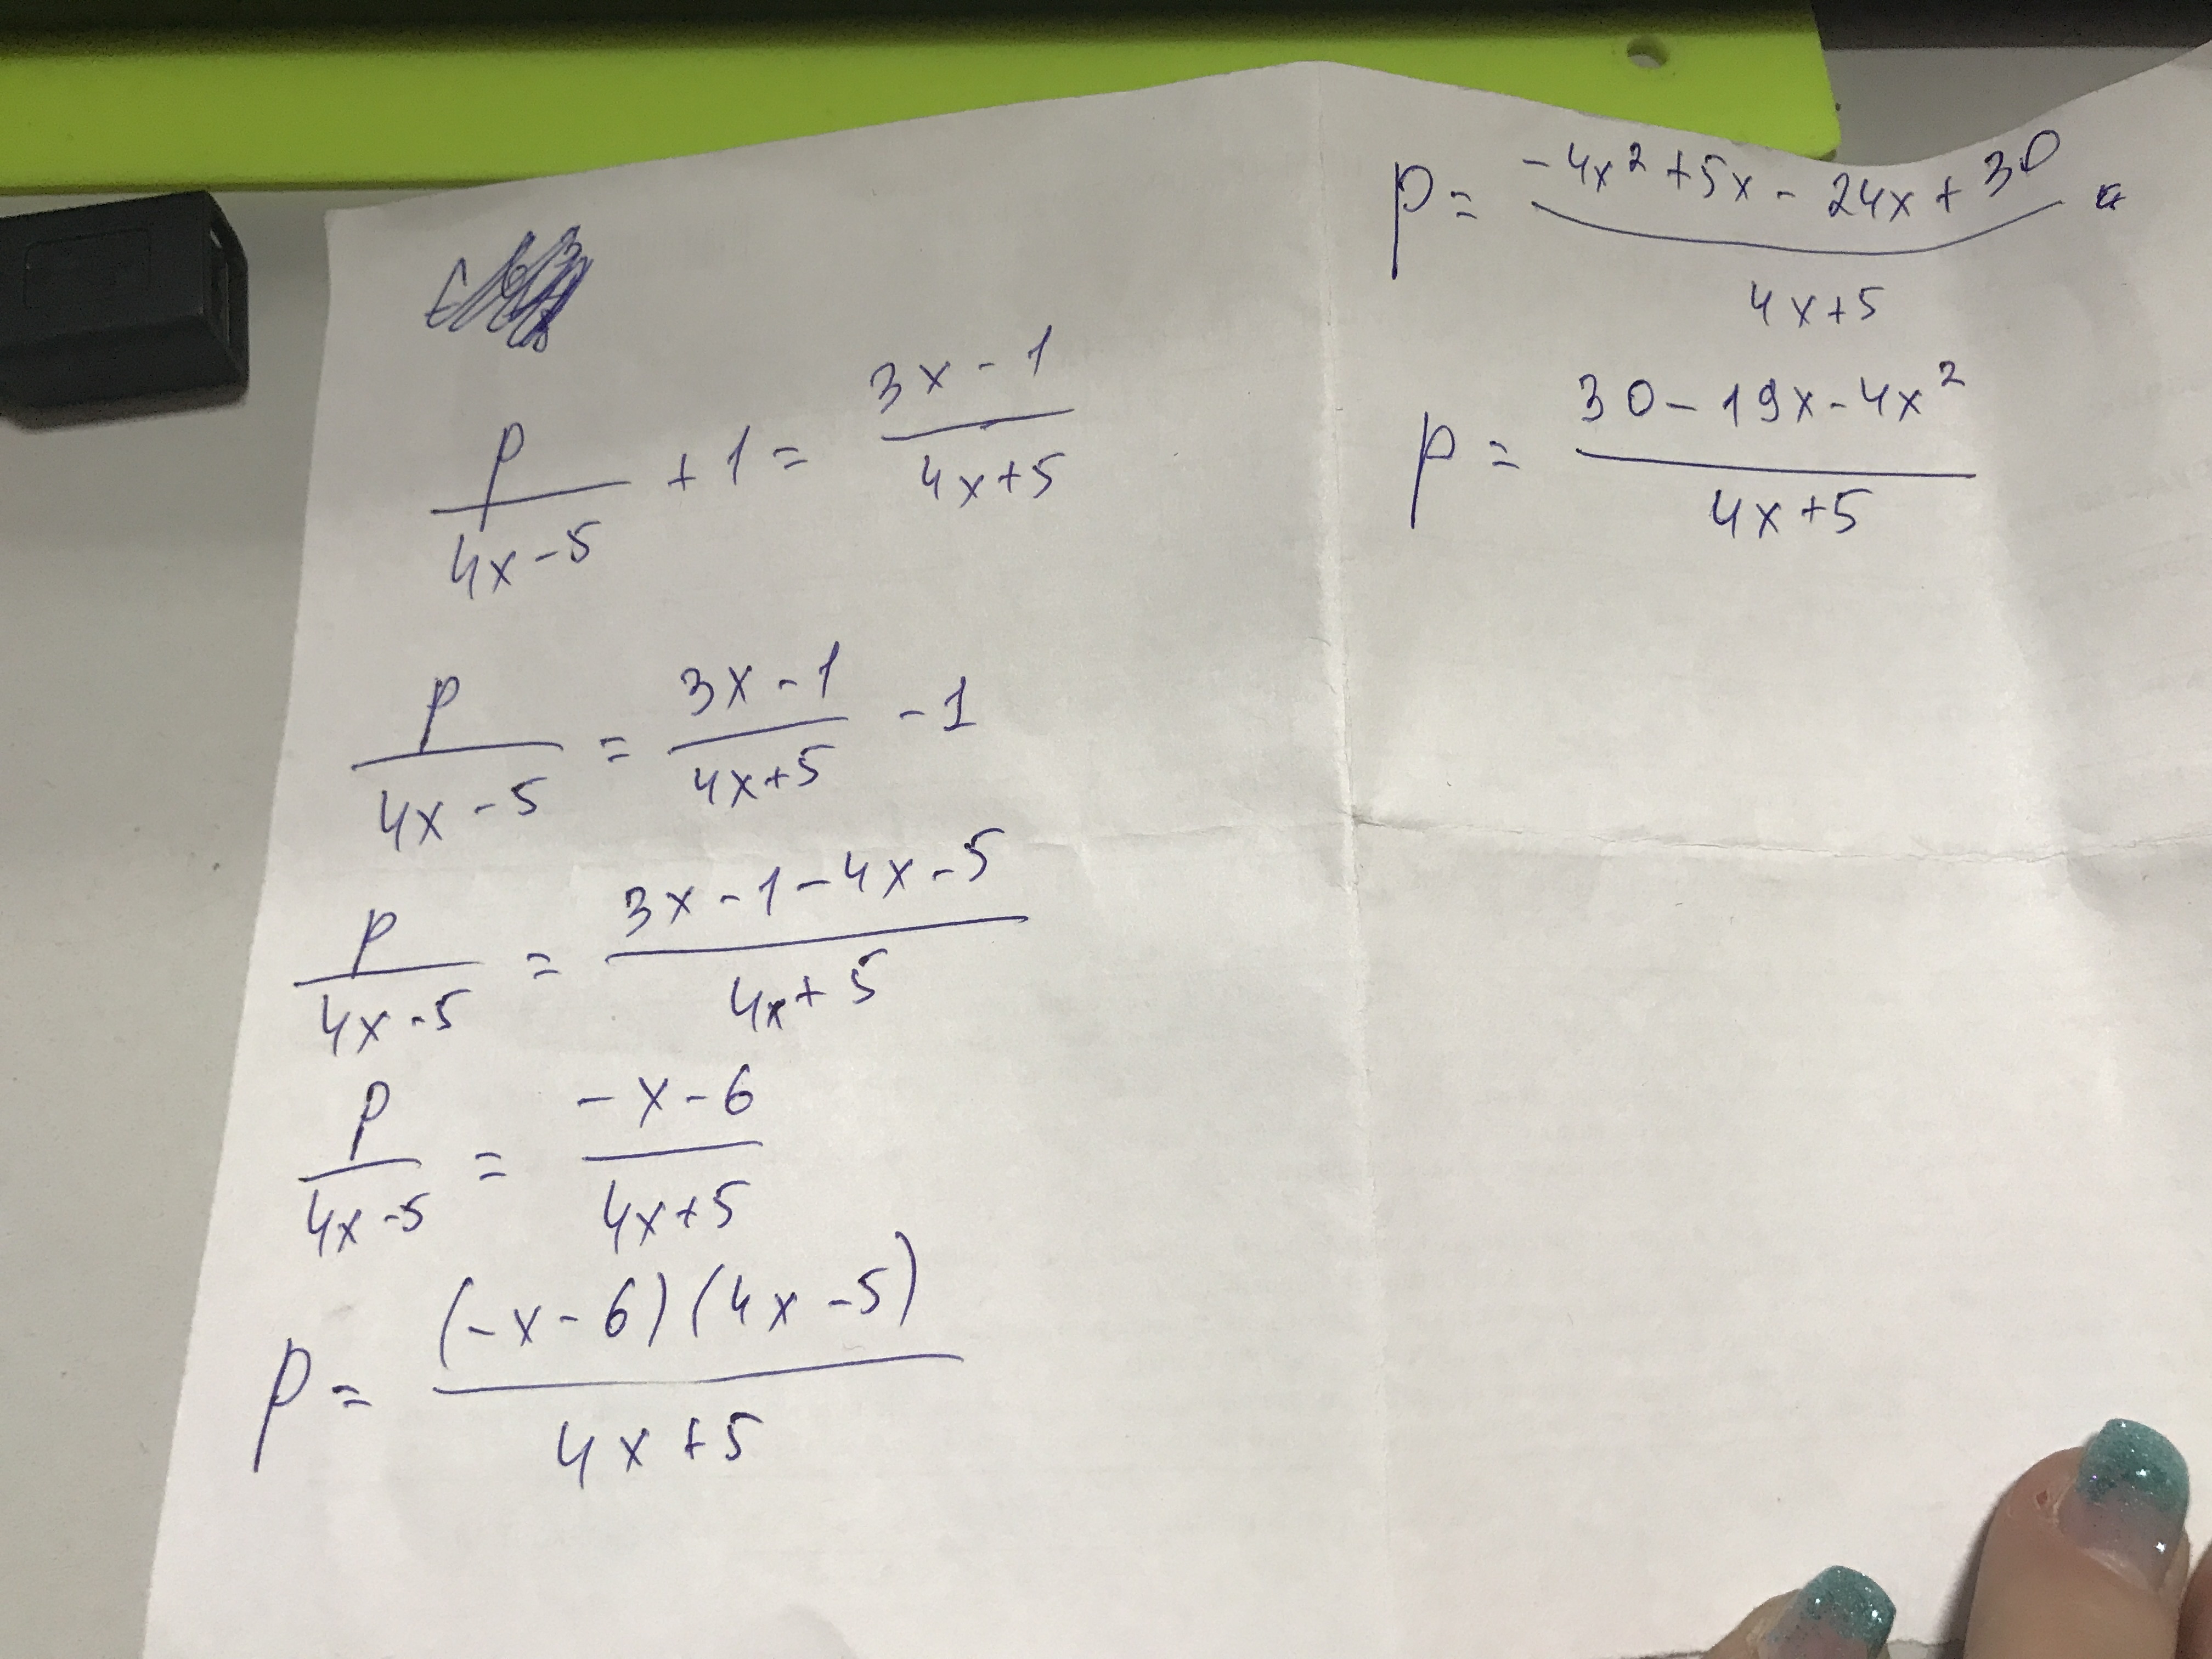 p/(4x-5) + 1 = (3x-1)/(4x+5)
p/(4x-5) = (3x-1)/(4x+5) - 1
p/(4x-5) = (3x-1-4x-5)/(4x+5)
p/(4x-5) = (-x-6)/(4x+5)
p = ((-x-6)(4x-5))/(4x+5)
p = (-4x²+5x-24x+30)/(4x+5)
p = (30-19x-4x²)/(4x+5)